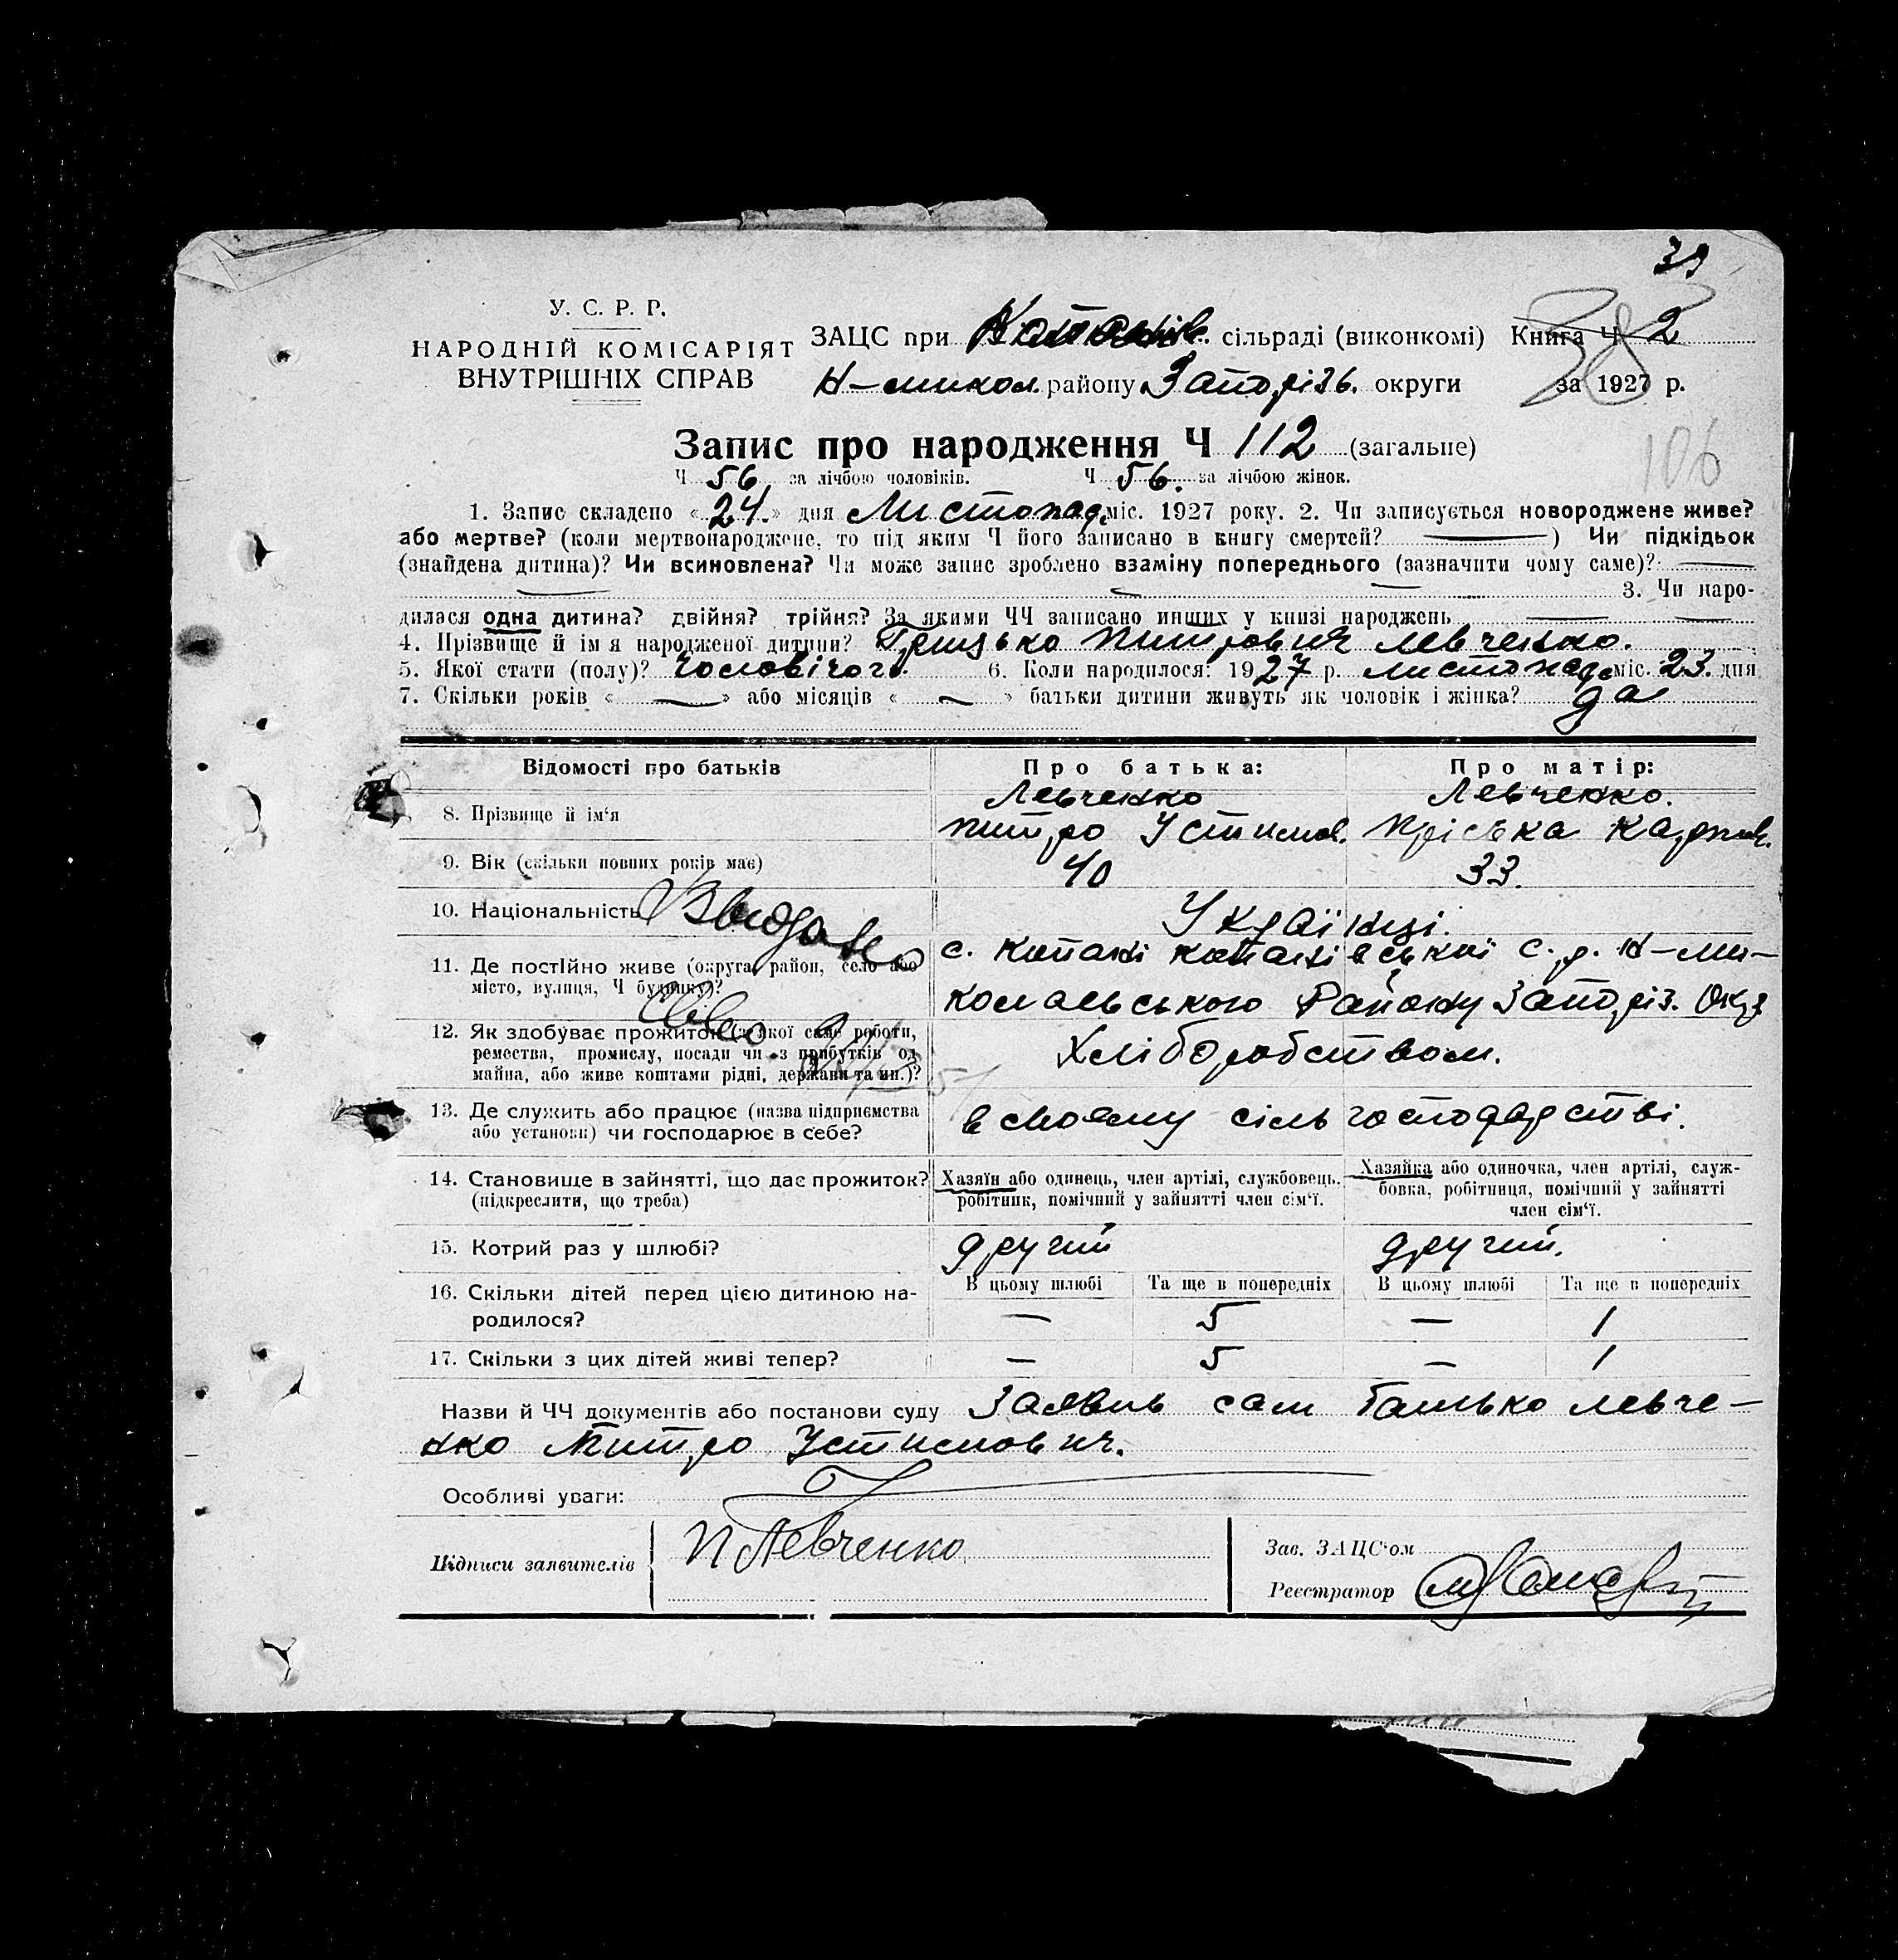 39
У. С. Р. Р.
НАРОДНІЙ КОМІСАРІЯТ
ВНУТРІШНІХ СПРАВ
ЗАЦС при Копанів. сільраді (виконкомі) Книга Ч 2
Н-микол. району Запоріз. округи за 1927 р.
38
Запис про народження Ч 112 (загальне)
106
Ч 56 за лічбою чоловіків. Ч 56. за лічбою жінок.
1. Запис складено « 24. » дня Листопад. міс. 1927 року. 2. Чи записується новороджене живе?
або мертве? (коли мертвонароджене, то під яким Ч його записано в книгу смертей? —) Чи підкідьок
(знайдена дитина)? Чи всиновлена? Чи може запис зроблено взаміну попереднього (зазначити чому саме)? —
— — — 3. Чи наро-
дилася одна дитина? двійня? трійня? За якими ЧЧ записано инших у книзі народжень — —
4. Прізвище й ім я народженої дитини? Грицько Питрович Левченко.
5. Якої стати (полу)? чоловічого. 6. Коли народилося: 1927 р. листопад. міс. 23. дня
7. Скільки років « — » або місяців « — » батьки дитини живуть як чоловік і жінка? да
Відомості про батьків Про батька: Про матір:
8. Прізвище й ім‘я Левченко Питро Устимов. Левченко. Пріська Карпов.
9. Вік (скільки повних років має) 40 33.
10. Національність Українці.
Видано
11. Де постійно живе (округа, район, село або
місто, вулиця, Ч будинку)?
с. Копані Копанівської с.р. Н-ми-
колаевського Району Запоріз. Окр
12. Як здобуває прожиток (з якої саме роботи,
ремества, промислу, посади чи з прибутків од
майна, або живе коштами рідні, держави та ин.)?
Хліборобством.
13. Де служить або працює (назва підприємства
або установи) чи господарює в себе?
в своему сільгосподарстві.
14. Становище в зайнятті, що дає прожиток?
(підкреслити, що треба)
Хазяїн або одинець, член артілі, службовець,
робітник, помічний у зайнятті член сім‘ї.
Хазяйка або одиночка, член артілі, служ-
бовка, робітниця, помічний у зайнятті
член сім‘ї.
15. Котрий раз у шлюбі? другий другий.
В цьому шлюбі Та ще в попередніх В цьому шлюбі Та ще в попередніх
16. Скільки дітей перед цією дитиною на-
родилося? — 5 — 1
17. Скільки з цих дітей живі тепер? — 5 — 1
Назви й ЧЧ документів або постанови суду Заявив сам батько Левче-
нко Питро Устимович.
Особливі уваги:
Підписи заявителів П Левченко
Зав. ЗАЦС‘ом
Реєстратор